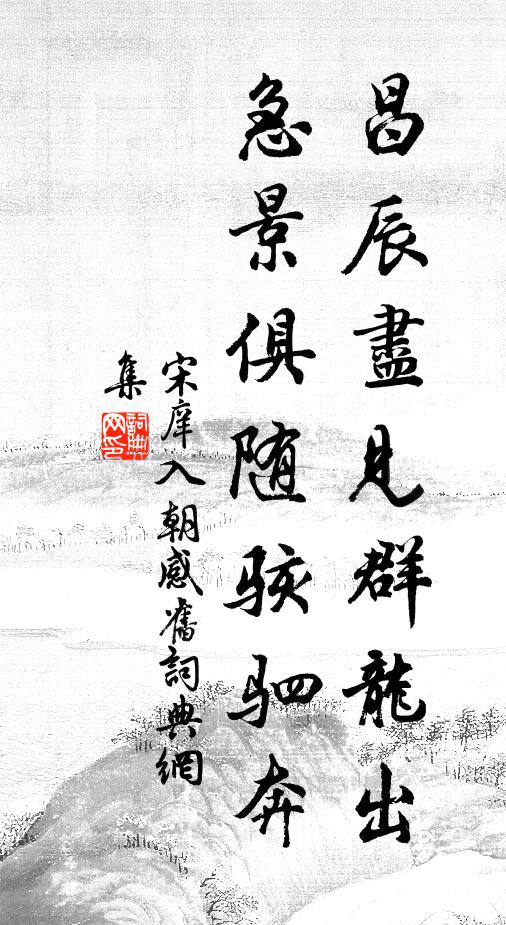 昌辰盡見群龍出
急景俱随駭駟奔
宋庠入朝感舊詞典網
集
詞典
网印